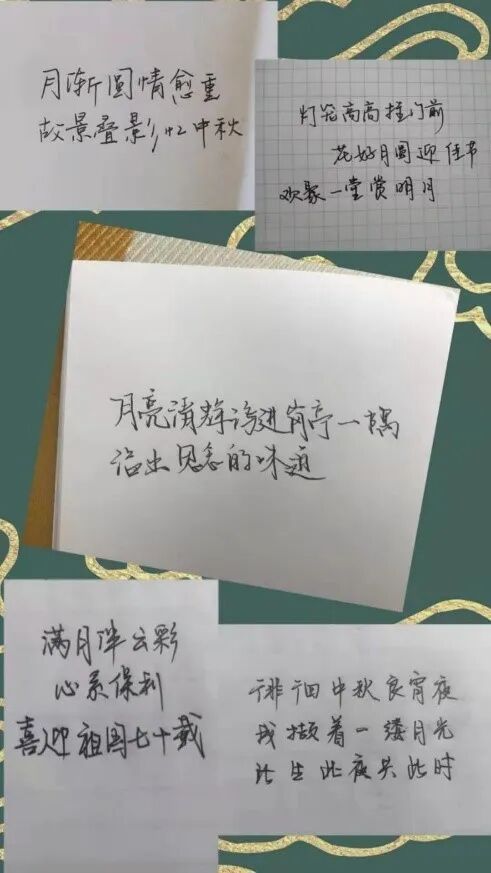 月渐圆情愈重
故景叠影忆中秋
灯笼高高挂门前
花好月圆迎佳节
欢聚一堂赏明月
月亮清辉透进前亭一隅
沿出思念的味道
满月伴云彩
心系保利
喜迎祖国七十载
徘徊中秋良宵夜
我撷着一缕月光
此生此夜共此时